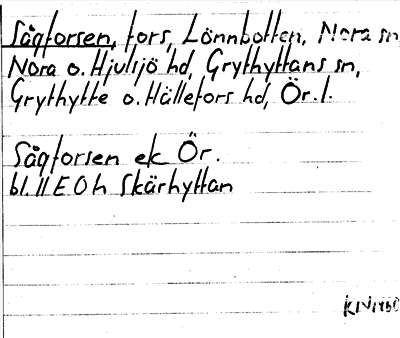 Sågforsen, fors, Lönnbotten, Nora sn,
Nora o. Hjulsjö hd, Grythyttans sn,
Grythytte o. Hällefors hd, Ör. l.
Sågforsen ek Ör.
bl. 11E 0h Skärhyttan